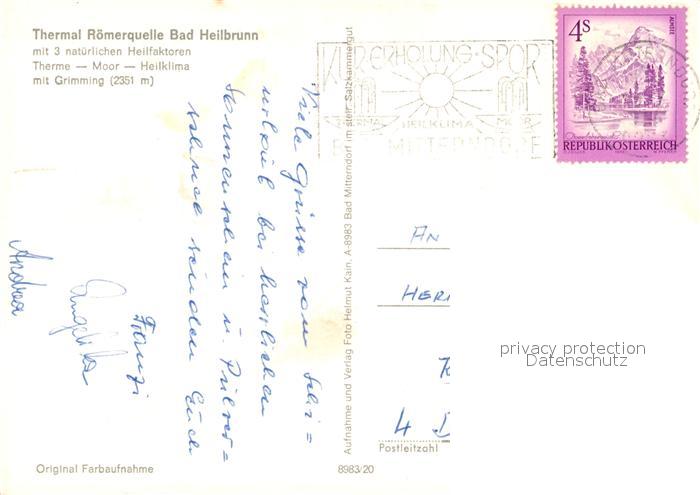 Thermal Römerquelle Bad Heilbrunn
mit 3 natürlichen Heilfaktoren
Therme — Moor — Heilklima
mit Grimming (2351 m)
Viele Grüsse vom Schi=
urlaub bei herrlichen
Sonnenschein u. Pulver=
schnee senden Euch
Franzi
Angelika
Andrea
Original Farbaufnahme
8983/20
Aufnahme und Verlag Foto Helmut Kain, A-8983 Bad Mitterndorf im steir. Salzkammergut
KUR·ERHOLUNG·SPORT
THERMA HEILKLIMA MOOR
MITTERNDORF
4S
ALMSEE
REPUBLIK ÖSTERREICH
AN
HER
4 D
Postleitzahl
privacy protection
Datenschutz